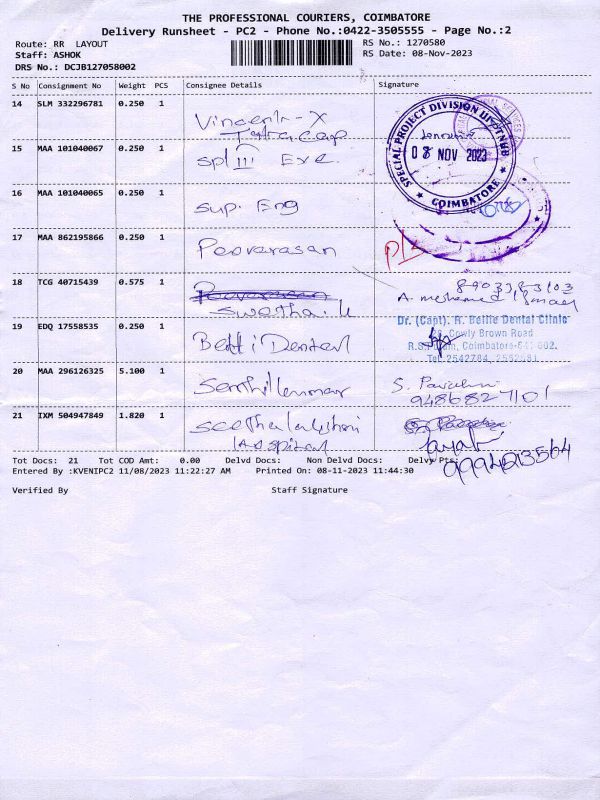 THE PROFESSIONAL COURIERS, COIMBATORE
Delivery Runsheet - PC2 - Phone No.:0422-3505555 - Page No.:2
Route: RR LAYOUT
RS No.: 1270580
Staff: ASHOK
RS Date: 08-Nov-2023
DRS No.: DCJB127058002
S No Consignment No Weight PCS Consignee Details Signature
14 SLM 332296781 0.250 1 Vincent - X
SPECIAL PROJECT DIVISION
08 NOV 2023
COIMBATORE
15 MAA 101040067 0.250 1 spl III Exe
16 MAA 101040065 0.250 1 sup. Eng
17 MAA 862195866 0.250 1 Poovarasan
18 TCG 40715439 0.575 1
Swetha. k
19 EDQ 17558535 0.250 1 Bettii Dental
Dr. (Capt). R. Bellie Dental Clinic
Cowly Brown Road
R.S. Puram, Coimbatore-641 002.
Tel: 2542784,
20 MAA 296126325 5.100 1 Senthilkumar
9486827101
21 IXM 504947849 1.820 1 seethalakshmi
Hospital
Tot Docs: 21 Tot COD Amt: 0.00 Delvd Docs: Non Delvd Docs: Delvy Pts:
9994213564
Entered By :KVENIPC2 11/08/2023 11:22:27 AM Printed On: 08-11-2023 11:44:30
Verified By Staff Signature